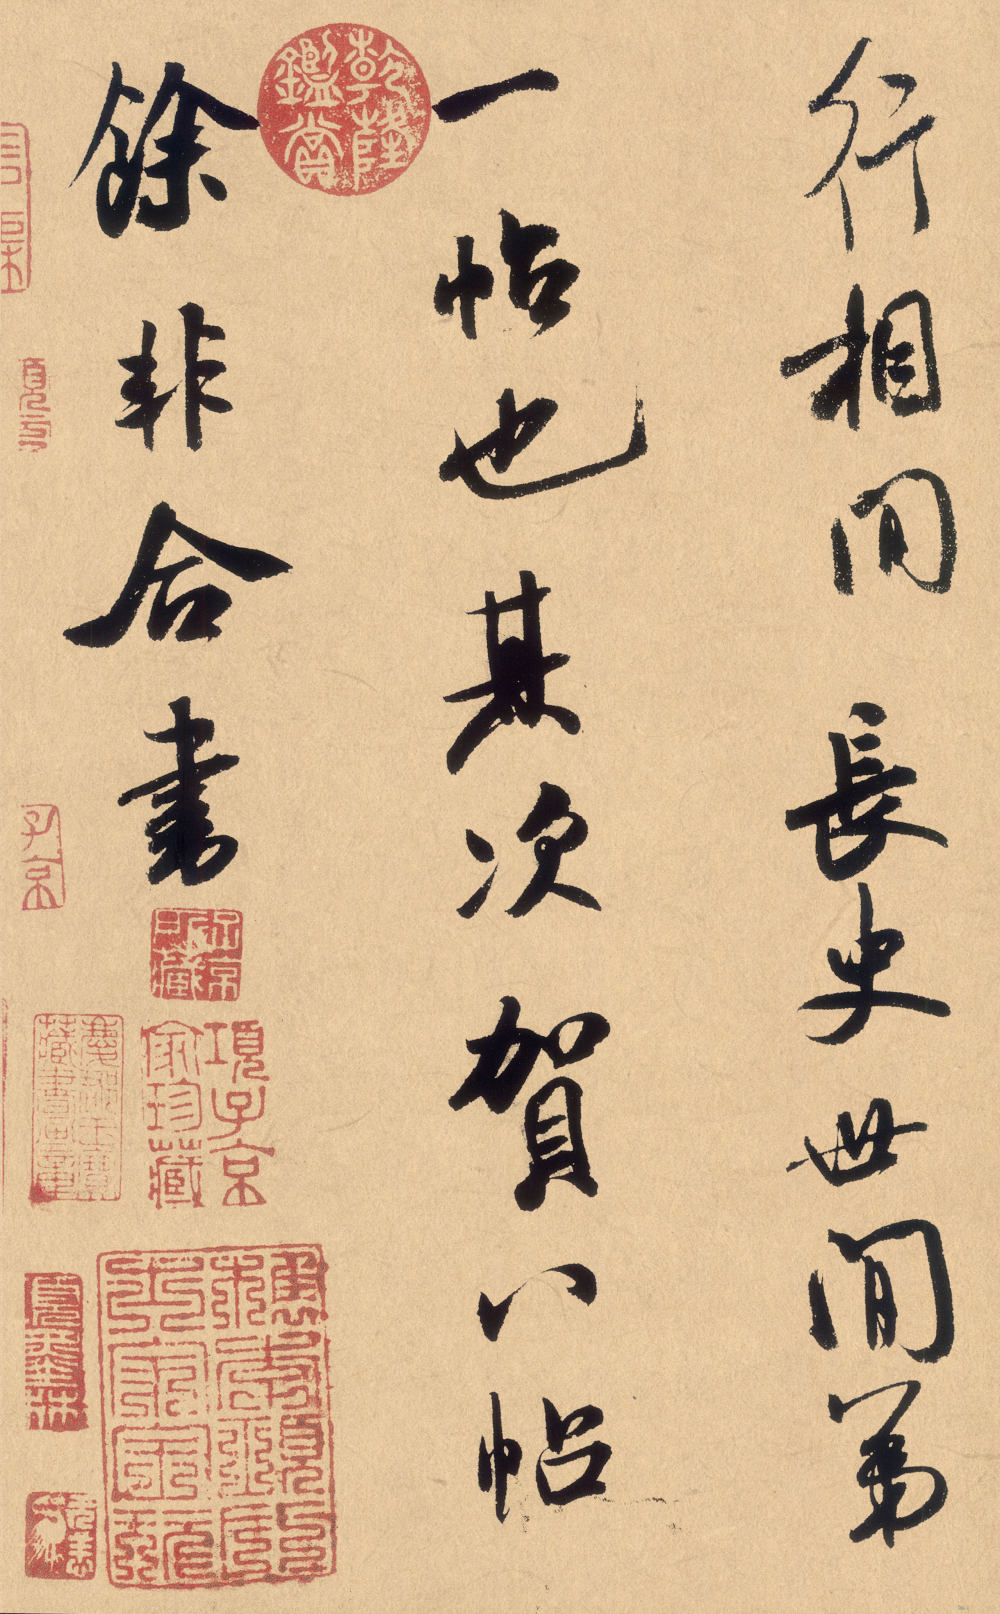 行相間長史世間第
一帖也其次賀八帖
餘非合書
乾隆
鑑賞
子京
項子京
家珍藏